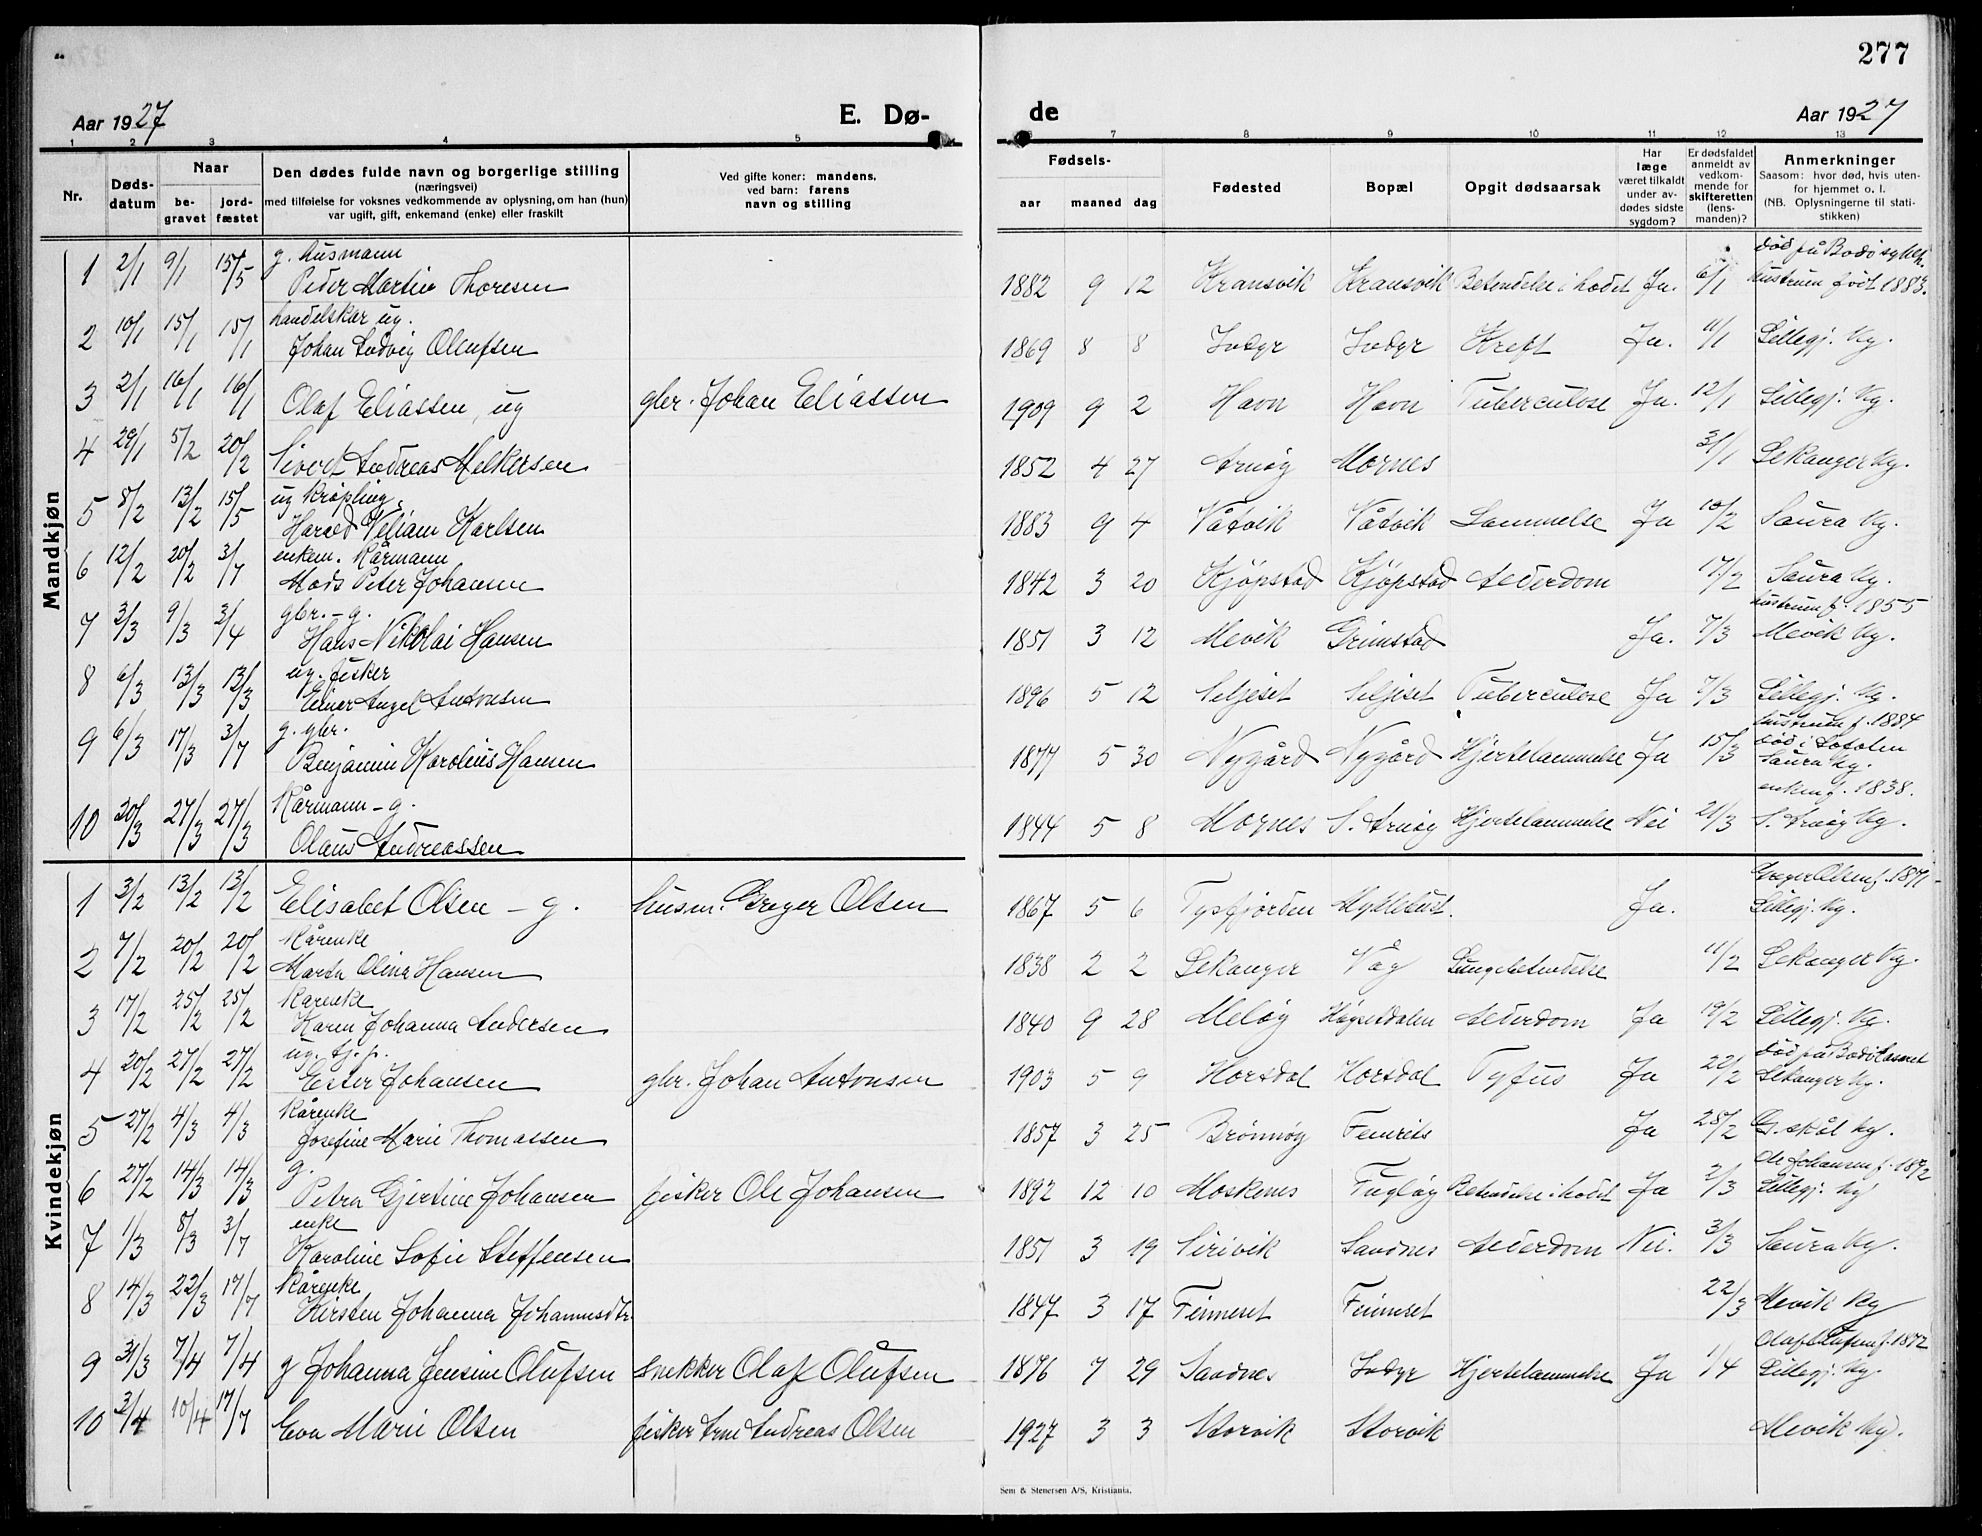 277
Aar 1927
E. Dø-
de
Aar 1927
1 2 3 4 5 6 7 8 9 10 11 12 13
Nr.
Døds-
datum
Naar
be-
gravet
jord-
fæstet
Den dødes fulde navn og borgerlige stilling
(næringsvei)
med tilføielse for voksnes vedkommende av oplysning, om han (hun)
var ugift, gift, enkemand (enke) eller fraskilt
Ved gifte koner: mandens,
ved barn: farens
navn og stilling
Fødsels-
aar maaned dag
Fødested
Bopæl
Opgit dødsaarsak
Har
læge
været tilkaldt
under av-
dødes sidste
sygdom?
Er dødsfaldet
anmeldt av
vedkom-
mende for
skifteretten
(lens-
manden)?
Anmerkninger
Saasom: hvor død, hvis uten-
for hjemmet o. l.
(NB. Oplysningerne til stati-
stikken)
Mandkjøn
g. husmann død på Bodø
1 2/1 9/1 15/5 Peder Martin Thoresen 1882 9 12 Kransvik Kransvik Betendelse i hodet Ja. 6/1 hustruen født 1883.
handelskar ug.
2 10/1 15/1 15/1 Johan Ludvig Olufsen 1869 8 8 Inndyr Inndyr Kreft Ja. 11/1 Lillegj. kg.
3 2/1 16/1 16/1 Olaf Eliassen, ug gbr. Johan Eliassen 1909 9 2 Havn Havn Tuberculose Ja. 12/1 Lillegj. kg.
4 29/1 5/2 20/2 Sivert Andreas Melkersen 1852 4 27 Arnøy Mornes 31/1 Lekanger kg.
ug krøpling
5 8/2 13/2 15/5 Harald Veliam Karlsen 1883 9 4 Våtvik Våtvik Lammelse Ja 10/2 Saura kg.
enkem. kårmann
6 12/2 20/2 3/7 Mads Peter Johansen 1842 3 20 Kjøpstad Kjøpstad Alderdom 17/2 Saura kg.
gbr. - g. hustruen f. 1855
7 3/3 9/3 3/4 Hans Nikolai Hansen 1851 3 12 Mevik Grimstad Ja. 7/3 Mevik kg.
ug. fisker
8 6/3 13/3 13/3 Einar Angel Antonsen 1896 5 12 Seljeset Seljeset Tuberculose Ja 7/3 Lillegj. kg.
g. gbr. hustruen f. 1884
død i Lofoten
9 6/3 17/3 3/7 Benjamin Karolius Hansen 1877 5 30 Nygård Nygård Hjertelammelse Ja 15/3 Saura kg.
kårmann - g. enken f. 1838.
10 20/3 27/3 27/3 Olaus Andreassen 1844 5 8 Mornes S. Arnøy Hjertelammelse Nei 21/3 S. Arnøy kg.
Kvindekjøn
Greger Olsen f. 1871
1 3/2 13/2 13/2 Elisabet Olsen - g. husm. Greger Olsen 1867 5 6 Tysfjorden Myklebust. Ja. Lillegj. kg.
kårenke
2 7/2 20/2 20/2 Marta Olina Hansen 1838 2 2 Lekanger Våg Lungebetendelse 11/2 Lekanger kg.
kårenke
3 17/2 25/2 25/2 Karen Johanna Andersen 1840 9 28 Meløy Høgsetdalen Alderdom Ja 19/2 Lillegj. kg.
ug. tj. p. død på Bodø Lasaret
4 20/2 27/2 27/2 Ester Johansen gbr. Johan Antonsen 1903 5 9 Horsdal Horsdal Tyfus Ja 22/2 Lekanger kg.
kårenke
5 27/2 4/3 4/3 Josefine Marie Thomassen 1857 3 25 Brønnøy Femris Ja 28/2 G.skål kg.
g. Ole Johansen f. 1892
6 27/2 14/3 14/3 Petra Gjertine Johansen fisker Ole Johansen 1892 12 10 Moskenes Fugløy Betendelse i hodet Ja 3/3 Lillegj. kg
enke
7 1/3 8/3 3/7 Karoline Sofie Steffensen 1851 3 19 Sirivik Sandnes Alderdom Nei. 3/3 Saura kg.
kårenke
8 14/3 22/3 17/7 Kirsten Johanna Johannesdtr. 1847 3 17 Finneset Finneset 22/3 Mevik kg
Olaf Olufsen f. 1872
9 31/3 7/4 7/4 g Johanna Jensine Olufsen snekker Olaf Olufsen 1876 7 29 Sandnes Inndyr Hjertelammelse Ja 1/4 Lillegj. kg.
10 3/4 10/4 17/7 Eva Marie Olsen fisker Arne Andreas Olsen 1927 3 3 Storvik Storvik Mevik kg.
Sem & Stenersen A/S, Kristiania.